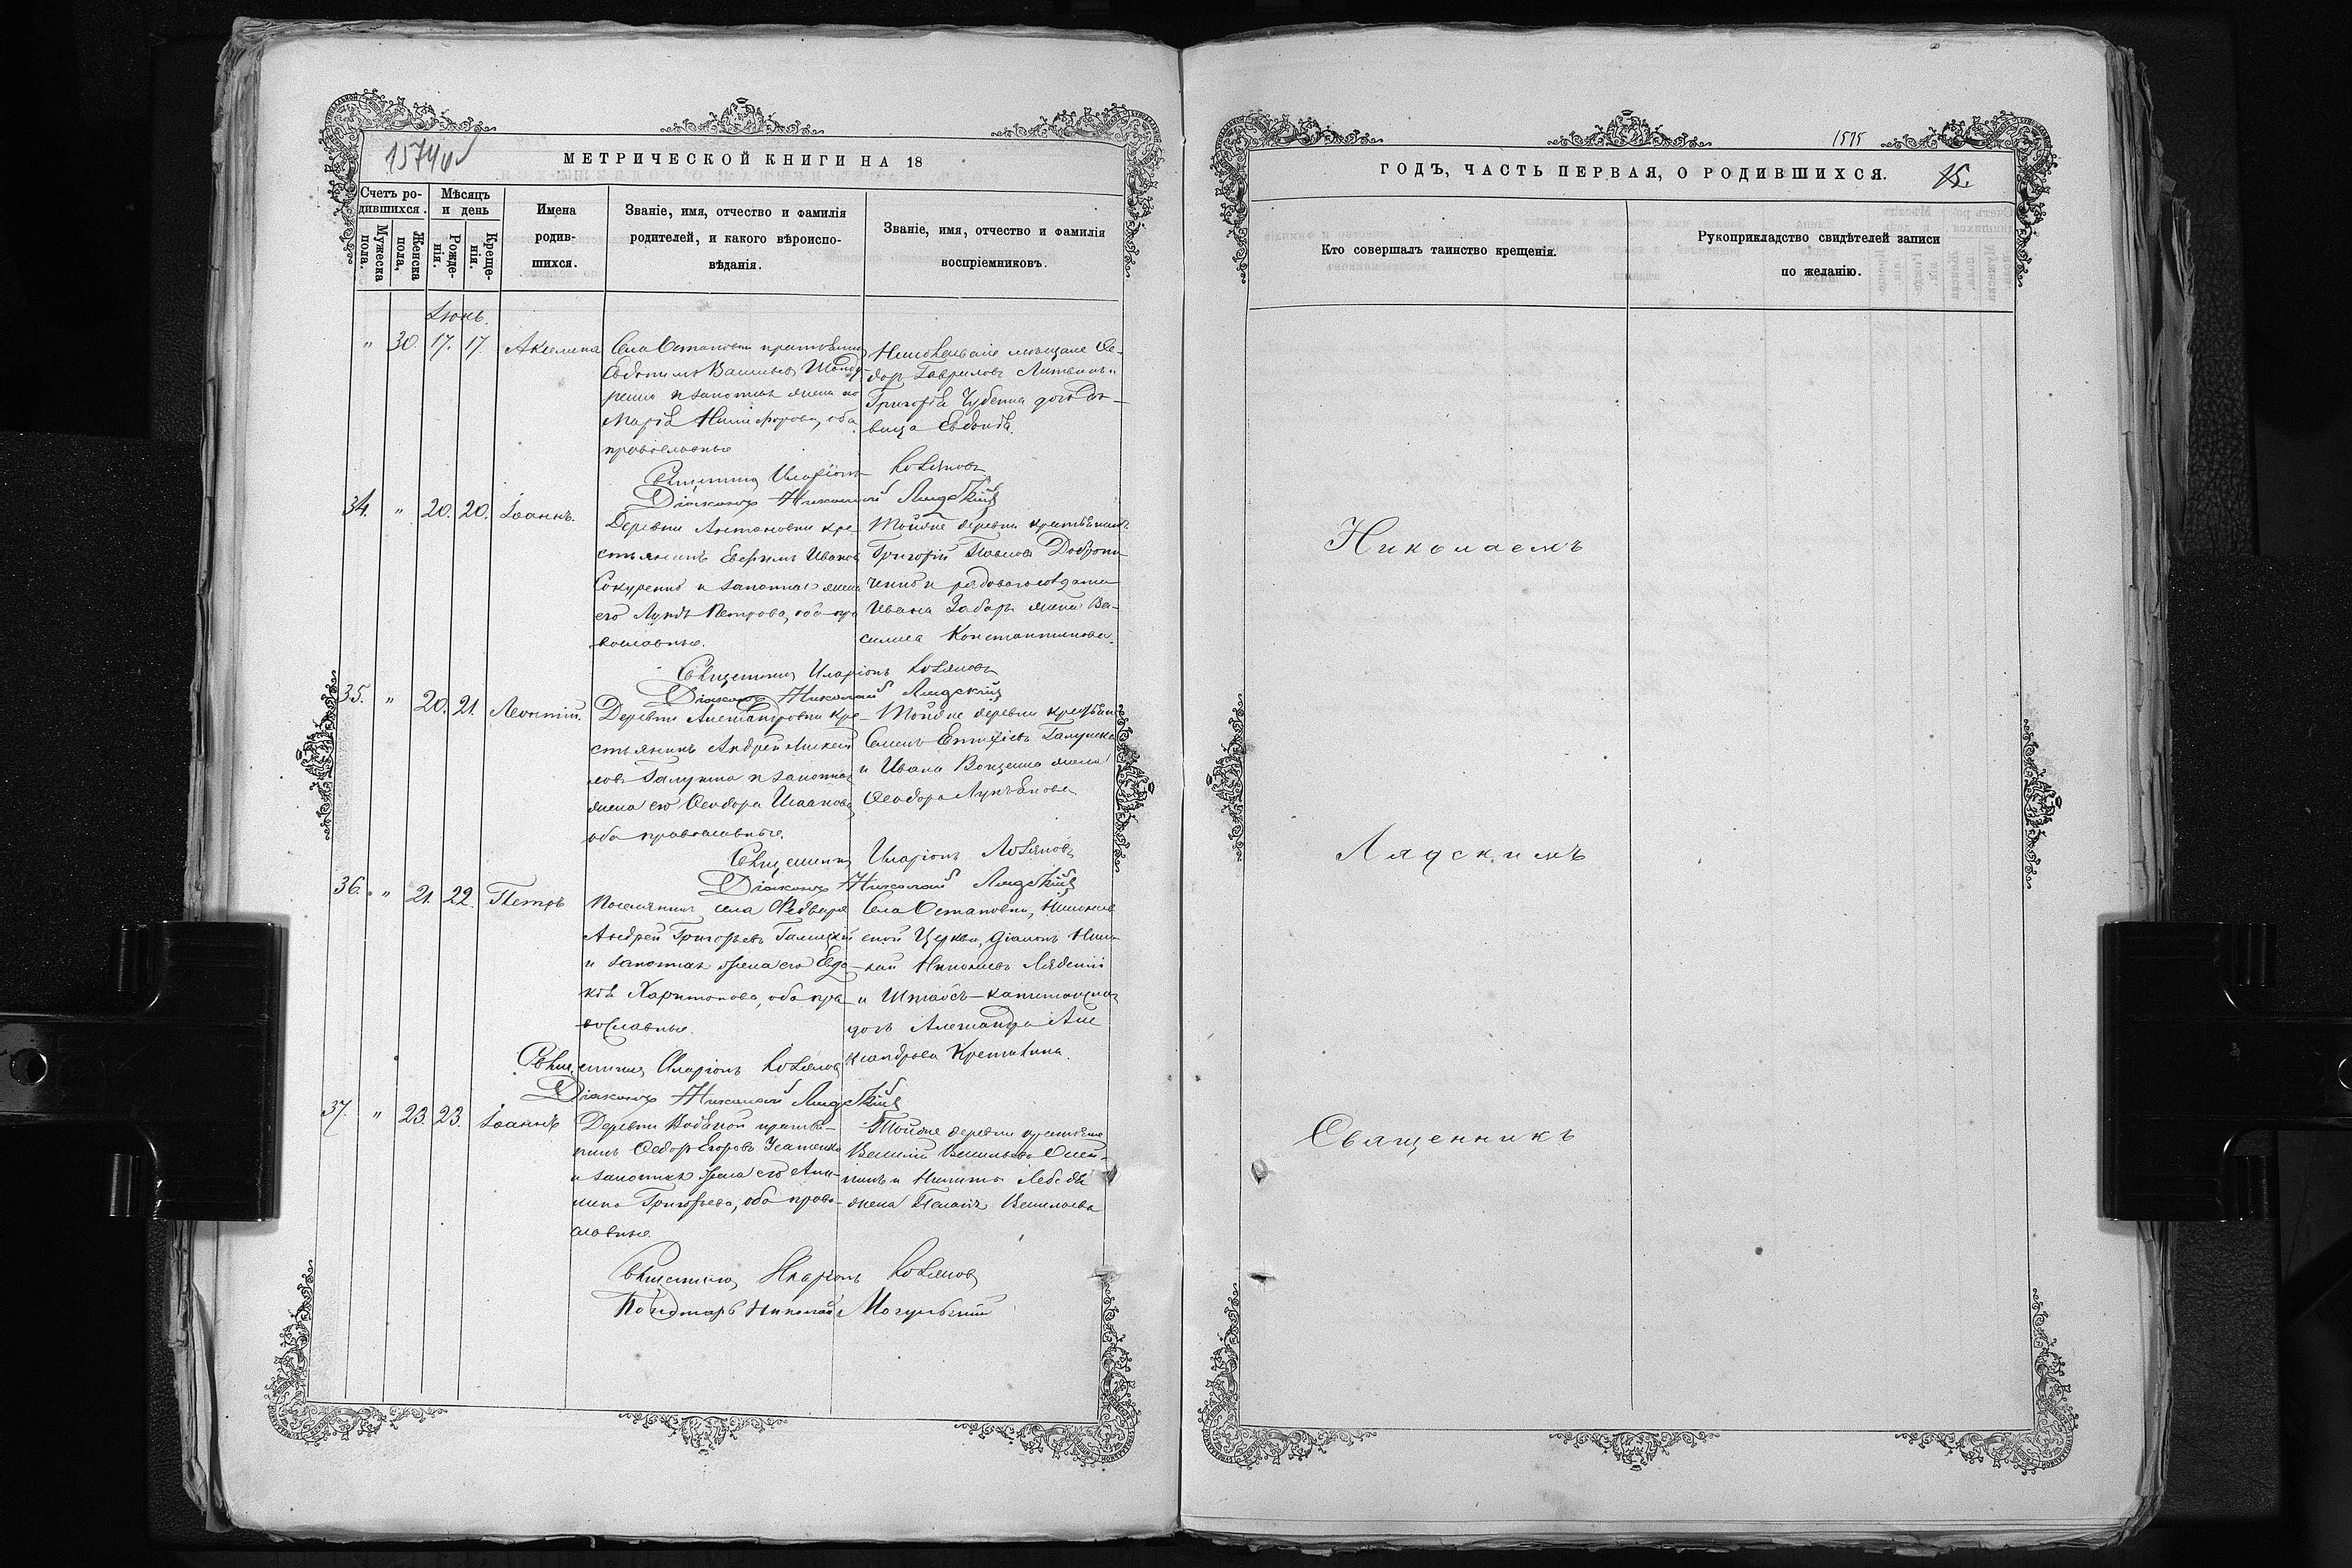 1574
МЕТРИЧЕСКОЙ КНИГИ НА 18
Счетъ родившихся.
Мужеска пола.
Женска пола,
Мѣсяцъ и день
Рожденія.
Крещенія.
Имена родившихся.
Званіе, имя, отчество и фамилія родителей, и какого вѣроисповѣданія.
Званіе, имя, отчество и фамилія воспріемниковъ.
Іюнь.
" 30. 17. 17. Акилина
Села Остаповки
Евдокимъ Васильевъ
и законная жена его
Марія Никифорова, оба
православные
мѣщане Ѳе-
доръ Гавриловъ Литвинъ и
Григорія Чубенка дочь дѣ-
вица Евдокія.
Священникъ Иларіонъ
Діаконъ Николай Лядскій
34. " 20. 20. Іоаннъ.
Деревни кре-
стьянинъ Евфимъ Ивановъ
Сокуренко и законная жена
его Петрова, оба пра
вославные.
Тойже деревни крестьянинъ
Григорій Павловъ
и рядоваго солдата
Ивана жена Ва-
силиса Константинова.
Священникъ Иларіонъ
Діаконъ Николай Лядскій
35. " 20. 21. Леонтій.
Деревни кре-
стьянинъ Андрей
Галушка и законная
жена его Ѳеодора Исаакова
оба православные.
Тойже деревни крестьян.
Семенъ Галушка
и Ивана жена
Ѳеодора Лукьянова
Священникъ Иларіонъ
Діаконъ Николай Лядскій
36. " 21. 22. Петръ
Поселянинъ села
Андрей Григорьевъ Галицкій
и законная жена его Евдо-
кія Харитонова, оба пра
вославные.
Села Остаповки, Николаев
ской Церкви, діаконъ Нико-
лай Николаевъ Лядскій
и Штабсъ-капитана
дочь Александра Але
ксандрова
Священникъ Иларіонъ
Діаконъ Николай Лядскій
37. " 23. 23. Іоаннъ
Деревни крестья-
нинъ Ѳедоръ Егоровъ Усатенко
и законная жена его Аки-
лина Григорьева, оба право-
славные.
Тойже деревни крестьяне
Василій Васильевъ Олей-
никъ и Никиты
жена Пелагія Васильева
Священникъ Иларіонъ
Пономарь Николай Могульскій
1575
ГОДЪ, ЧАСТЬ ПЕРВАЯ, О РОДИВШИХСЯ.
15.
Кто совершалъ таинство крещенія.
Рукоприкладство свидѣтелей записи по желанію.
Николаемъ
Лядскимъ
Священникъ